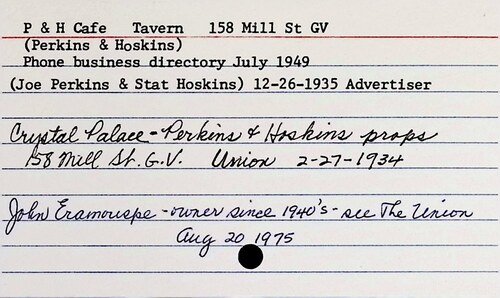 P & H Cafe Tavern 158 Mill St GV
(Perkins & Hoskins)
Phone business directory July 1949
(Joe Perkins & Stat Hoskins) 12-26-1935 Advertiser
Crystal Palace - Perkins & Hoskins props
158 Mill St. G.V. Union 2-27-1934
John Eramouspe - owner since 1940's - see The Union
Aug 20 1975